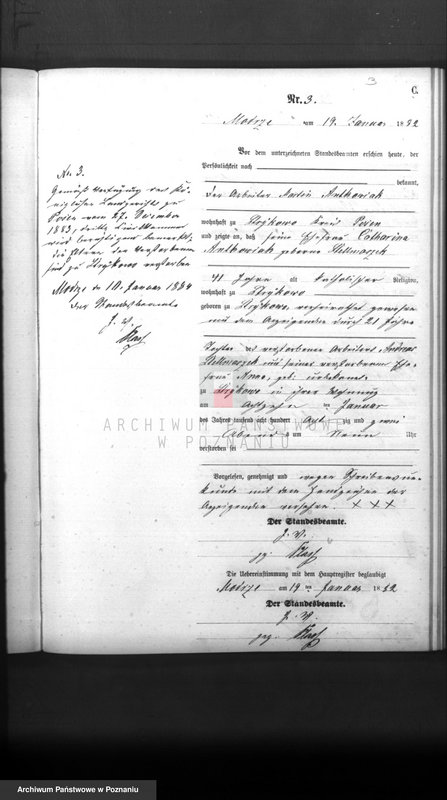 3
C.
Nr. 3.
Modrze am 19. Januar 1882
Vor dem unterzeichneten Standesbeamten erschien heute, der
Persönlichkeit nach
bekannt,
der Arbeiter Martin Antkowiak
wohnhaft zu Strykowo Kreis Posen
und zeigte an, daß seine Ehefrau Catharina
Antkowiak geborene
41 Jahre alt katholischer Religion,
wohnhaft zu Strykowo
geboren zu Strykowo, verheirathet gewesen
mit dem Anzeigenden durch 21 Jahre
Tochter des verstorbenen Arbeiters Andreas
und seiner verstorbenen Ehe-
frau Anna, geb. unbekannt
zu Strykowo in ihrer Wohnung
am achtzehn ten Januar
des Jahres tausend acht hundert achtzig und zwei
Abends um neun Uhr
verstorben sei
Vorgelesen, genehmigt und wegen Schreibensun-
kunde mit dem Handzeichen des
Anzeigenden versehen. XXX
Der Standesbeamte.
J. V.
gez.
Die Uebereinstimmung mit dem Hauptregister beglaubigt
Modrze am 19 ten Januar 1882
Der Standesbeamte.
J. V.
gez.
No 3.
Gemäß Verfügung des Kö-
niglichen Landgerichts zu
Posen vom 27. Dezember
1883, dritte Civilkammer
wird berichtigend bemerkt,
die Eltern der Verstorbenen
sind zu Strykowo verstorben
Modrze den 10. Januar 1884
Der Standesbeamte
J. V.
ARCHIWUM PAŃSTWOWE
W POZNANIU
Archiwum Państwowe w Poznaniu